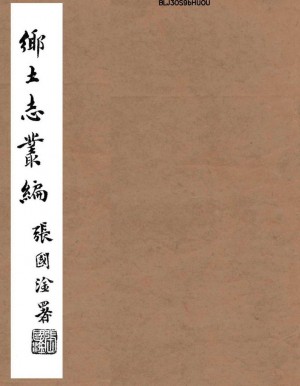 BLJ30S9bHU0U
鄉土志叢編
張國淦署